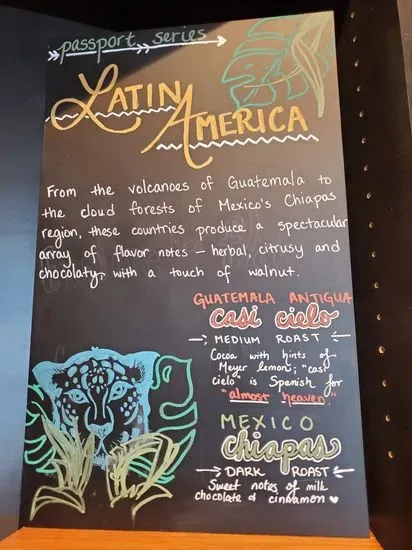 passport series
LATIN
AMERICA
From the volcanoes of Guatemala to
the cloud forests of Mexico's Chiapas
region, these countries produce a spectacular
array of flavor notes – herbal, citrusy and
chocolaty, with a touch of walnut.
GUATEMALA ANTIGUA
casi cielo
MEDIUM ROAST
Cocoa with hints of
Meyer lemon; "casi
cielo" is Spanish for
"almost heaven"
MEXICO
chiapas
DARK ROAST
Sweet notes of milk
chocolate & cinnamon ♥